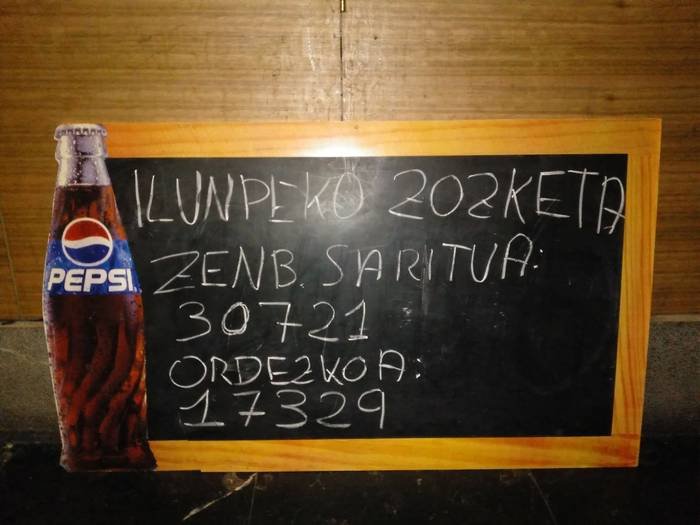 ILUNPEKO ZOZKETA
ZENB. SARITUA:
30721
ORDEZKOA:
17329
PEPSI